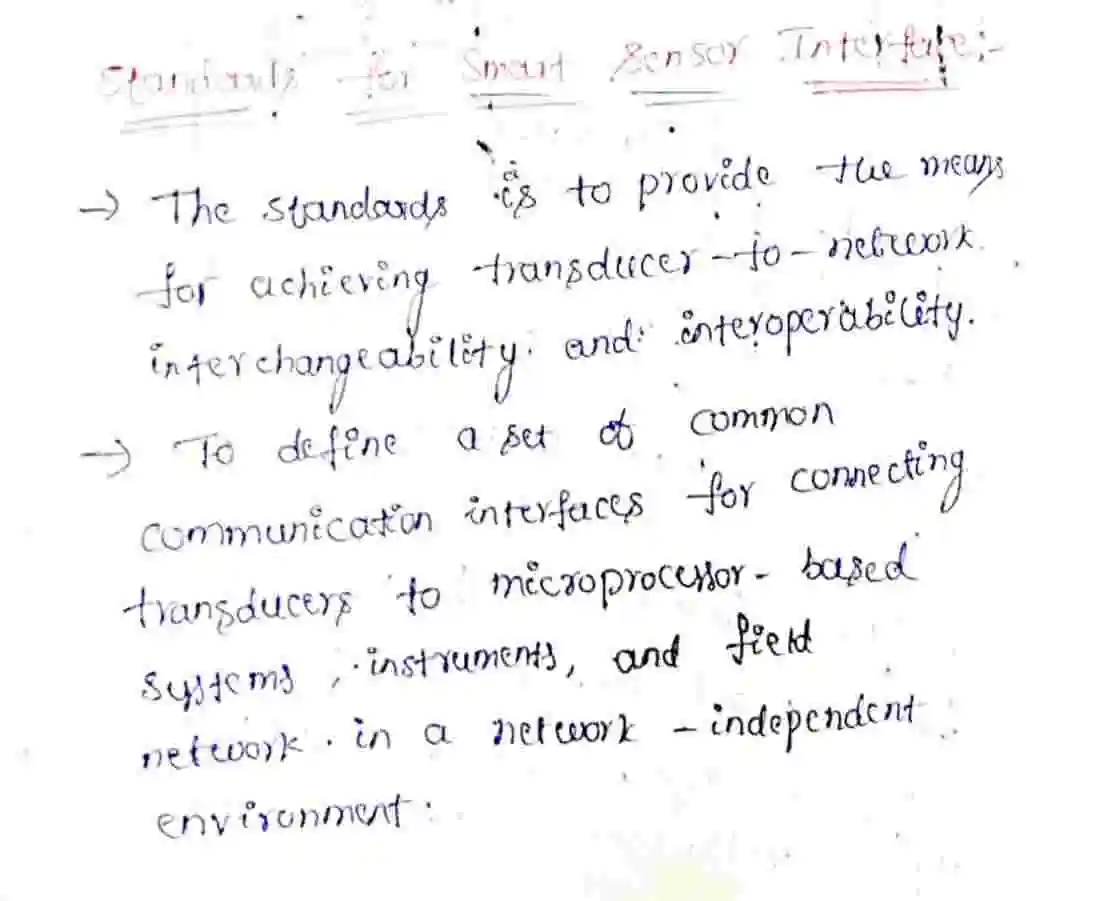 Standards for Smart Sensor Interface:-
→ The standards is to provide the means
for achieving transducer-to-network
interchangeability and interoperability.
→ To define a set of common
communication interfaces for connecting
transducers to microprocessor-based
systems, instruments, and field
network in a network-independent
environment.